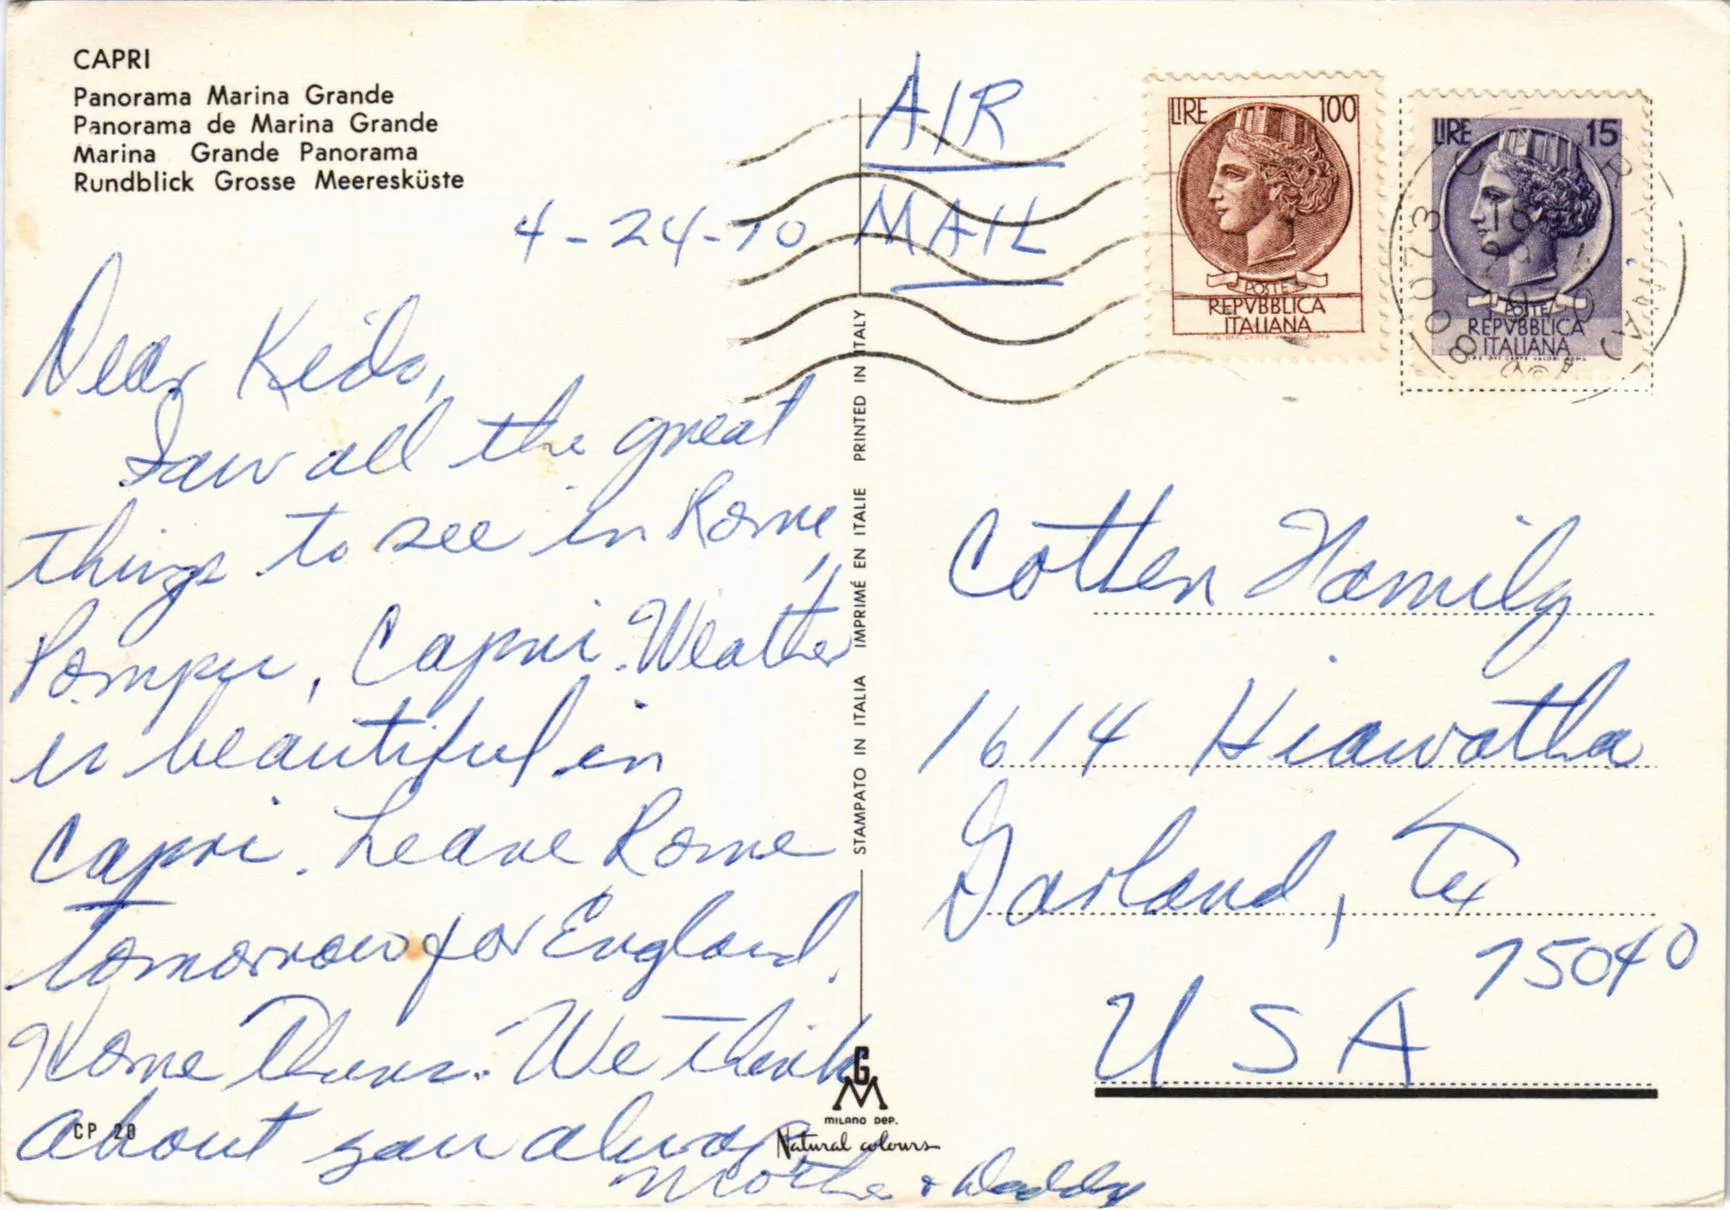 CAPRI
Panorama Marina Grande
Panorama de Marina Grande
Marina Grande Panorama
Rundblick Grosse Meeresküste
4-24-70
Dear Kids,
Saw all the great
things to see in Rome,
Pompei, Capri. Weather
is beautiful in
Capri. Leave Rome
tomorrow for England.
Home Thurs. We think
about you always
Mother & Daddy
CP 20
STAMPATO IN ITALIA IMPRIMÉ EN ITALIE PRINTED IN ITALY
GM
MILANO DEP.
Natural colours
AIR
MAIL
LIRE 100
POSTE
REPVBBLICA
ITALIANA
LIRE 15
POSTE
REPVBBLICA
ITALIANA
80073
Cotten Family
1614 Hiawatha
Garland, Tex
75040
USA